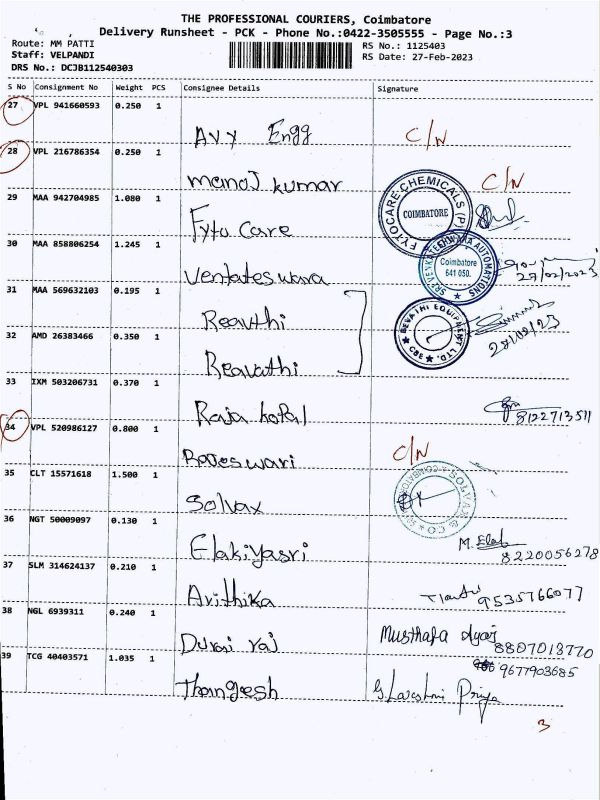 THE PROFESSIONAL COURIERS, Coimbatore
Delivery Runsheet - PCK - Phone No.:0422-3505555 - Page No.:3
Route: MM PATTI RS No.: 1125403
Staff: VELPANDI RS Date: 27-Feb-2023
DRS No.: DCJB112540303
S No Consignment No Weight PCS Consignee Details Signature
27 VPL 941660593 0.250 1
AVY Engg C/N
28 VPL 216786354 0.250 1
Manoj kumar C/N
29 MAA 942704985 1.080 1
Fyto Care FYTOCARE CHEMICALS (P) COIMBATORE
30 MAA 858806254 1.245 1
Venkateswara SRI VENKATESHWARA AUTOMATIONS Coimbatore 641 050. 27/02/2023
31 MAA 569632103 0.195 1
Reavthi
32 AMD 26383466 0.350 1
Reavathi REVATHI EQUIPMENT LTD. CBE 27/02/23
33 IXM 503206731 0.370 1
Raja Gopal 8122713511
34 VPL 520986127 0.800 1
Rajeswari C/N
35 CLT 15571618 1.500 1
Solvax SOLVAX & CO COIMBATORE
36 NGT 50009097 0.130 1
Elakiyasri M. Elak 8220056278
37 SLM 314624137 0.210 1
Arithika 9535766077
38 NGL 6939311 0.240 1
Durai raj Musthafa 8807013770
39 TCG 40403571 1.035 1 9677903685
Thangesh G. Lakshmi Priya
3